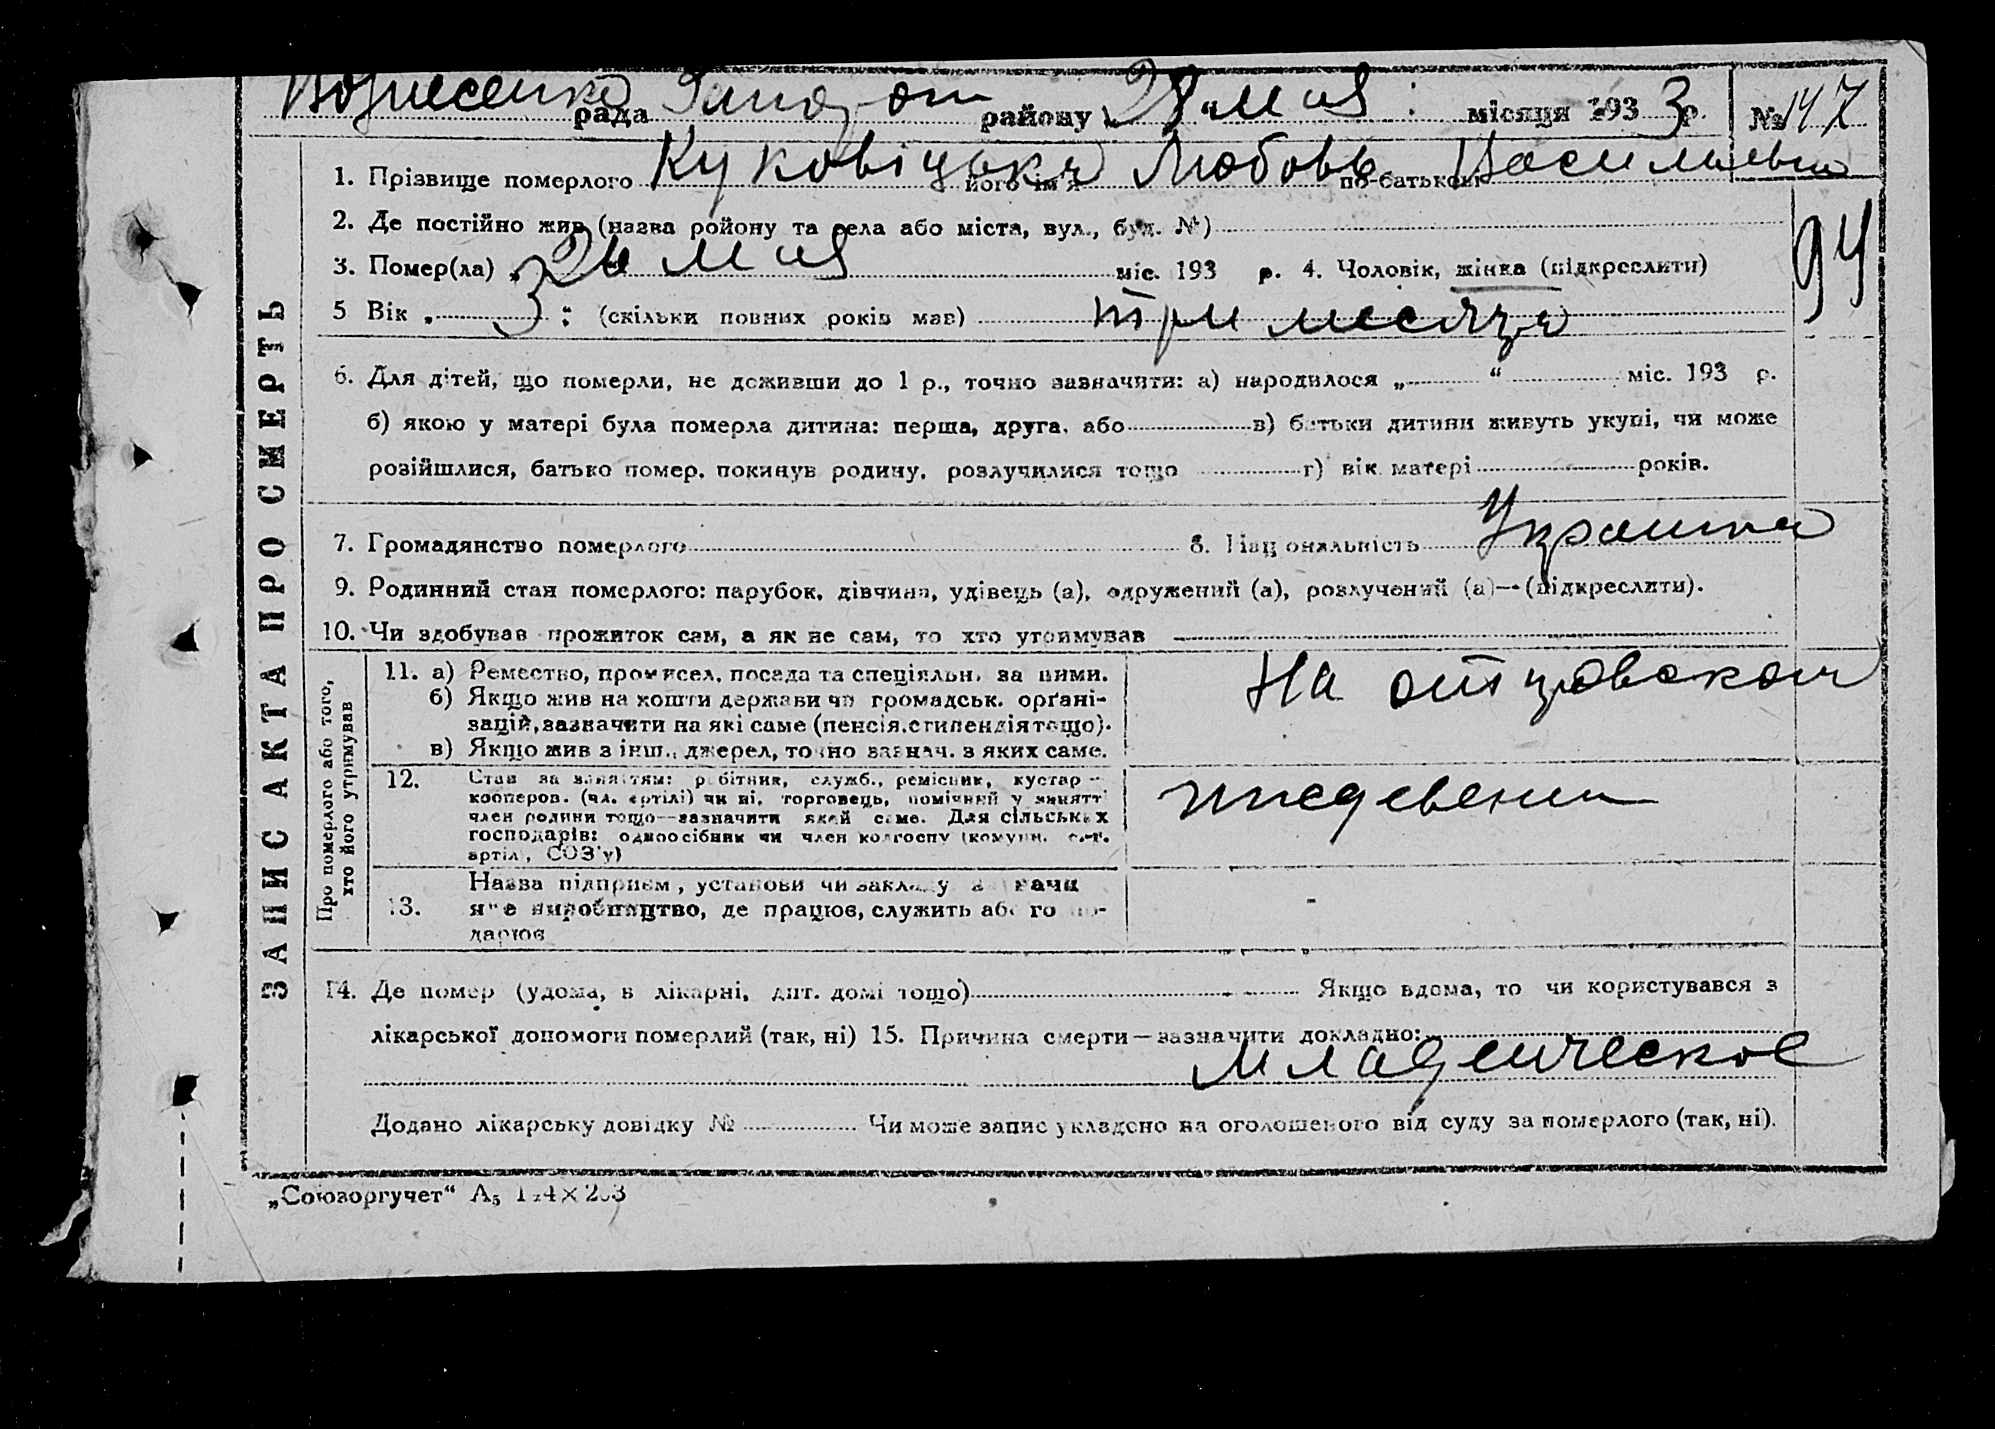 Вознесенка рада Запорож району 28 "мая місяця 1933 р. № 147
1. Прізвище померлого Куковіцька його ім'я Любовь по-батькові Васильевна
2. Де постійно жив (назва ройону та села або міста, вул., буд. №)
94
3. Помер(ла) „ 26 мая міс. 193 р. 4. Чоловік, жінка (підкреслити)
5 Вік „ 3 : (скільки повних років мав) три месяца
6. Для дітей, що померли, не доживши до 1 р., точно зазначити: а) народилося „ “ міс. 193 р.
б) якою у матері була померла дитина: перша, друга, або в) батьки дитини живуть укупі, чи може
розійшлися, батько помер, покинув родину, розлучилися тощо г) вік матері років.
7. Громадянство померлого 8. Національність Украинка
9. Родинний стан померлого: парубок, дівчина, удівець (а), одружений (а), розлучений (а)—(підкреслити).
10. Чи здобував прожиток сам, а як не сам, то хто утримував
ЗАПИС АКТА ПРО СМЕРТЬ
Про померлого або того,
хто його утримував
11. а) Ремество, промисел, посада та спеціяльн. за ними.
б) Якщо жив на кошти держави чи громадськ. орґані-
зацій, зазначити на які саме (пенсія, стипендія тощо).
в) Якщо жив з інш., джерел, точно зазнач. з яких саме.
На отцовском
12. Стан за заняттям: робітник, служб., ремісник, кустар –
кооперов. (чл. артілі) чи ні, торговець, помічний у занятті
член родини тощо—зазначити який саме. Для сільських
господарів: одноосібник чи член колгоспу (комуни, с.-г.
артілі, СОЗ'у)
иждевении
13. Назва підприєм, установи чи закладу
яке виробництво, де працює, служить або го по-
дарює
14. Де помер (удома, в лікарні, дит. домі тощо) Якщо вдома, то чи користувався з
лікарської допомоги померлий (так, ні) 15. Причина смерти—зазначити докладно:
младенческое
Додано лікарську довідку № Чи може запис укладено на оголошеного від суду за померлого (так, ні).
„Союзоргучет“ А₅